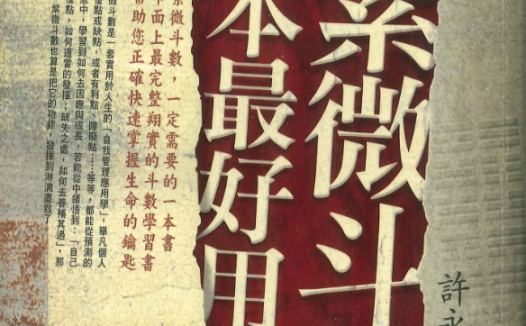 許永
紫微斗
本最好用
紫微斗數,一定需要的一本書
面上最完整翔實的斗數學習書
幫助您正確快速掌握生命的鑰匙
斗數是一套實用於人生的「自我管理應用學」,舉凡個人
優點或缺點,或者有利點、障礙點……等等,都能從預測的
中,學習到如何去因應與成長,若能從中領悟到:「自己
點,如何適當的發揮;缺失之處,如何去善補其過」,那
紫微斗數也算是把它的功能,發揮到淋漓盡致了